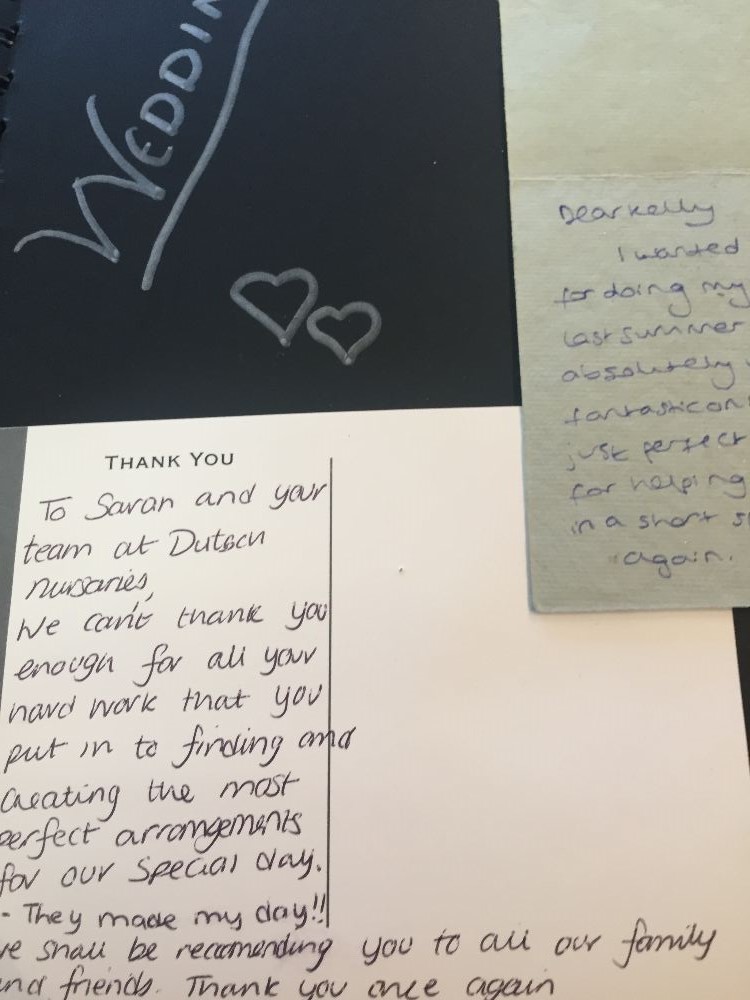 WEDDIN
Dear Kelly
I wanted
for doing my
last summer
absolutely
fantastic
just perfect
for helping
in a short
again.
THANK YOU
To Sarah and your
team at Dutsch
nursaries,
We can't thank you
enough for all your
hard work that you
put in to finding and
creating the most
perfect arrangements
for our special day.
- They made my day!!
we shall be recomending you to all our family
and friends. Thank you once again